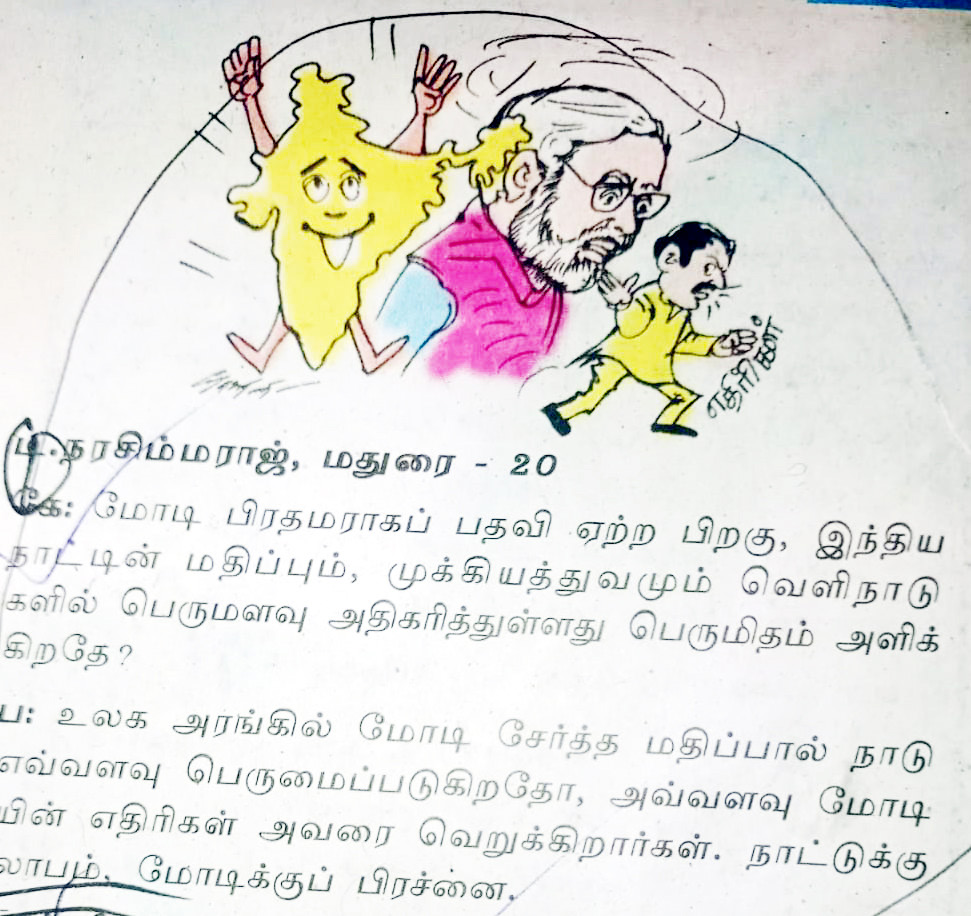 எதிரிகள்
டி.நரசிம்மராஜ், மதுரை - 20
கே: மோடி பிரதமராகப் பதவி ஏற்ற பிறகு, இந்திய
நாட்டின் மதிப்பும், முக்கியத்துவமும் வெளிநாடு
களில் பெருமளவு அதிகரித்துள்ளது பெருமிதம் அளிக்
கிறதே?
ப: உலக அரங்கில் மோடி சேர்த்த மதிப்பால் நாடு
எவ்வளவு பெருமைப்படுகிறதோ, அவ்வளவு மோடி
யின் எதிரிகள் அவரை வெறுக்கிறார்கள். நாட்டுக்கு
லாபம், மோடிக்குப் பிரச்னை.